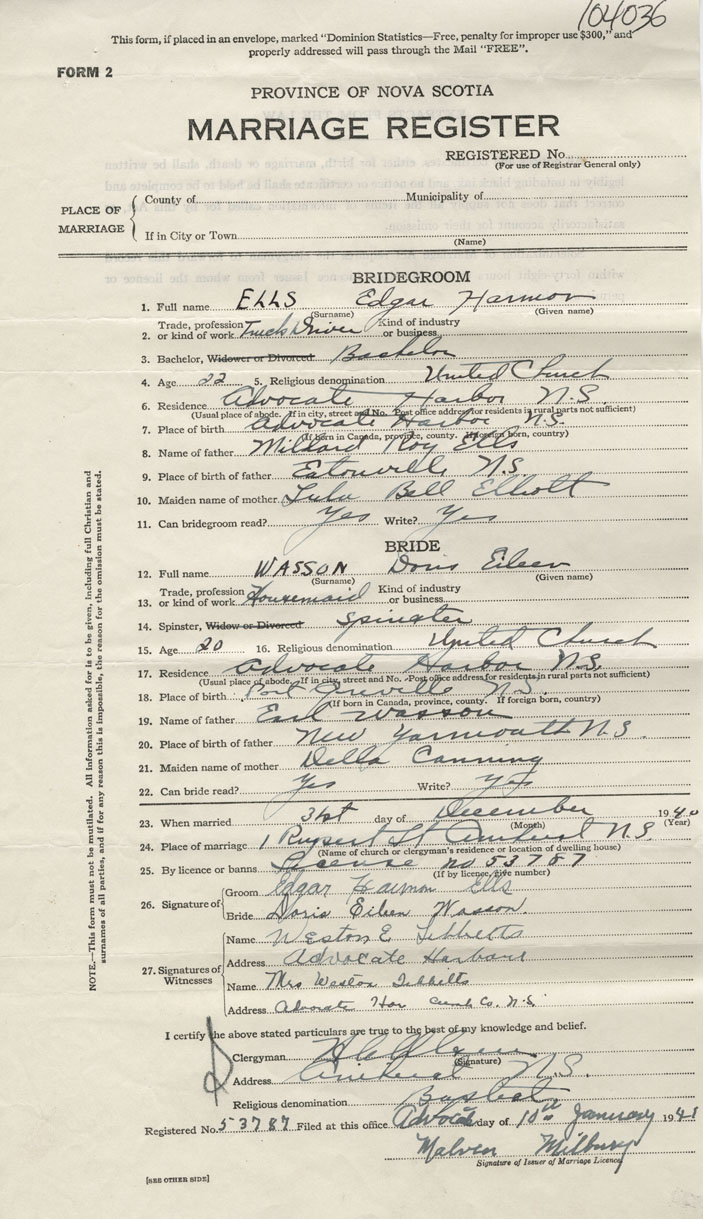 104036
This form, if placed in an envelope, marked "Dominion Statistics—Free, penalty for improper use $300," and
properly addressed will pass through the Mail "FREE".
FORM 2
PROVINCE OF NOVA SCOTIA
MARRIAGE REGISTER
REGISTERED No.
(For use of Registrar General only)
PLACE OF MARRIAGE
County of Municipality of
If in City or Town
(Name)
BRIDEGROOM
1. Full name ELLS Edgar Harmon
(Surname) (Given name)
2. Trade, profession or kind of work Truck Driver Kind of industry or business
3. Bachelor, Widower or Divorced Bachelor
4. Age 22 5. Religious denomination United Church
6. Residence Advocate Harbor N.S.
(Usual place of abode. If in city, street and No. Post office address for residents in rural parts not sufficient)
7. Place of birth Advocate Harbor N.S.
(If born in Canada, province, county. If foreign born, country)
8. Name of father Millard Roy Ells
9. Place of birth of father Eatonville N.S.
10. Maiden name of mother Lulu Bell Elliott
11. Can bridegroom read? Yes Write? Yes
BRIDE
12. Full name WASSON Doris Eileen
(Surname) (Given name)
13. Trade, profession or kind of work Housemaid Kind of industry or business
14. Spinster, Widow or Divorced Spinster
15. Age 20 16. Religious denomination United Church
17. Residence Advocate Harbor N.S.
(Usual place of abode. If in city, street and No. Post office address for residents in rural parts not sufficient)
18. Place of birth Port Greville N.S.
(If born in Canada, province, county. If foreign born, country)
19. Name of father Earl Wasson
20. Place of birth of father New Yarmouth N.S.
21. Maiden name of mother Della Canning
22. Can bride read? Yes Write? Yes
23. When married 31st day of December 1940
(Month) (Year)
24. Place of marriage 1 Rupert St Amherst N.S.
(Name of church or clergyman's residence or location of dwelling house)
25. By licence or banns License no 53787
(If by licence, give number)
26. Signature of
Groom Edgar Harmon Ells
Bride Doris Eileen Wasson.
27. Signatures of Witnesses
Name Weston E Tibbetts
Address Advocate Harbour
Name Mrs Weston Tibbetts
Address Advocate Har Cumb Co. N.S.
I certify the above stated particulars are true to the best of my knowledge and belief.
Clergyman
(Signature)
Address Amherst N.S.
Religious denomination Baptist
Registered No. 53787 Filed at this office Advocate day of 10th January 1941
Malven Milbury
Signature of Issuer of Marriage Licence
[SEE OTHER SIDE]
NOTE.—This form must not be mutilated. All information asked for is to be given, including full Christian and
surnames of all parties, and if for any reason this is impossible, the reason for the omission must be stated.